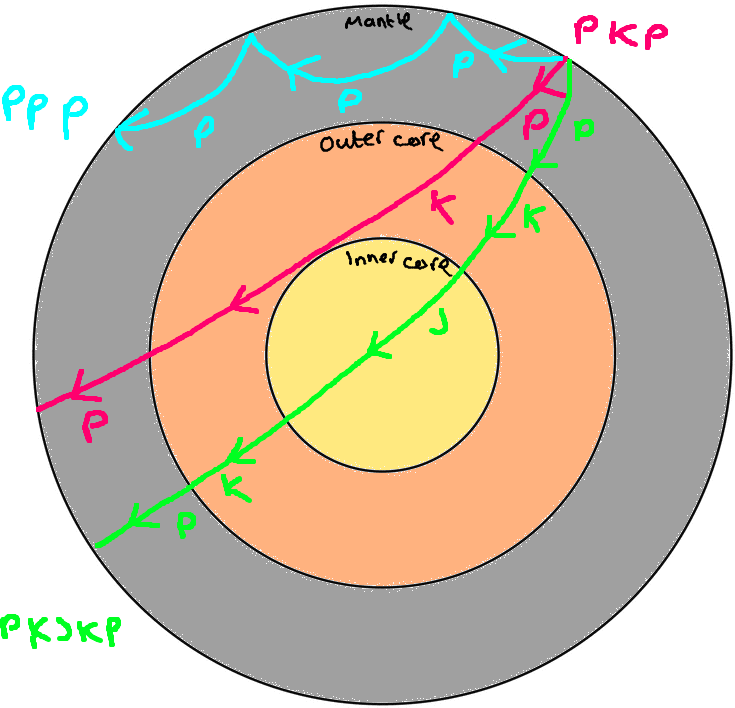 Mantle
PKP
P
P
PPP
P
P
P
Outer core
K
K
Inner core
J
P
K
P
PKJKP